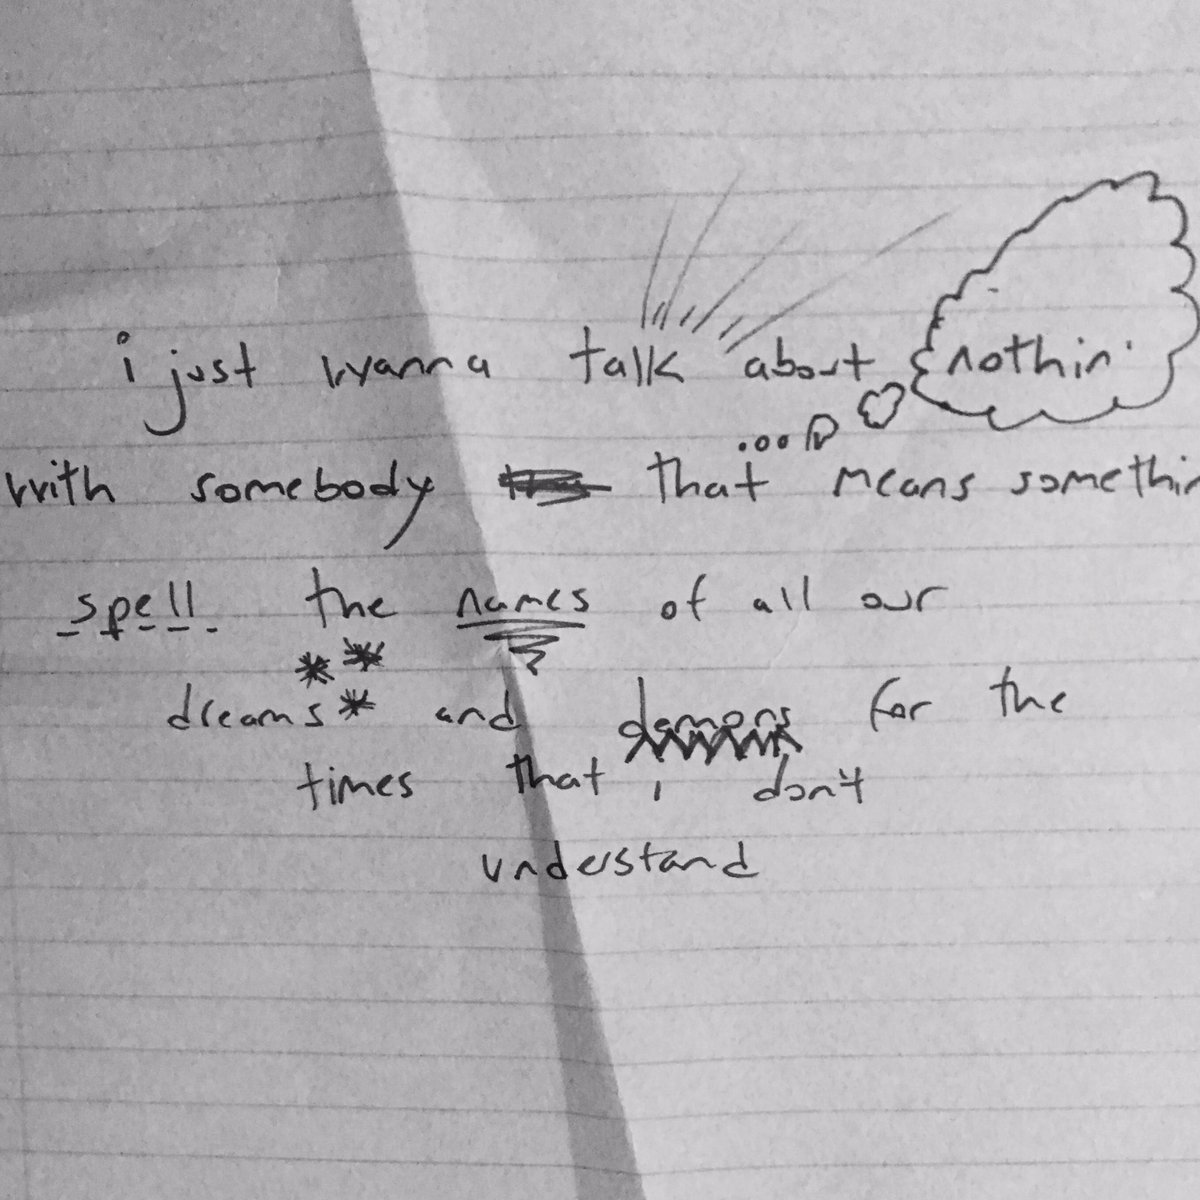 i just wanna talk about nothin'
with somebody that means somethin
spell the names of all our
dreams and demons for the
times that i don't
understand